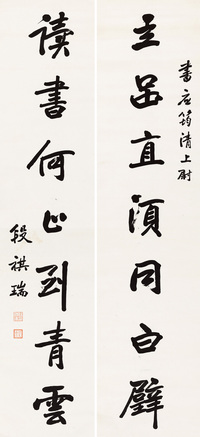 書應筠清上尉
立品直須同白璧
讀書何止到青雲
段祺瑞